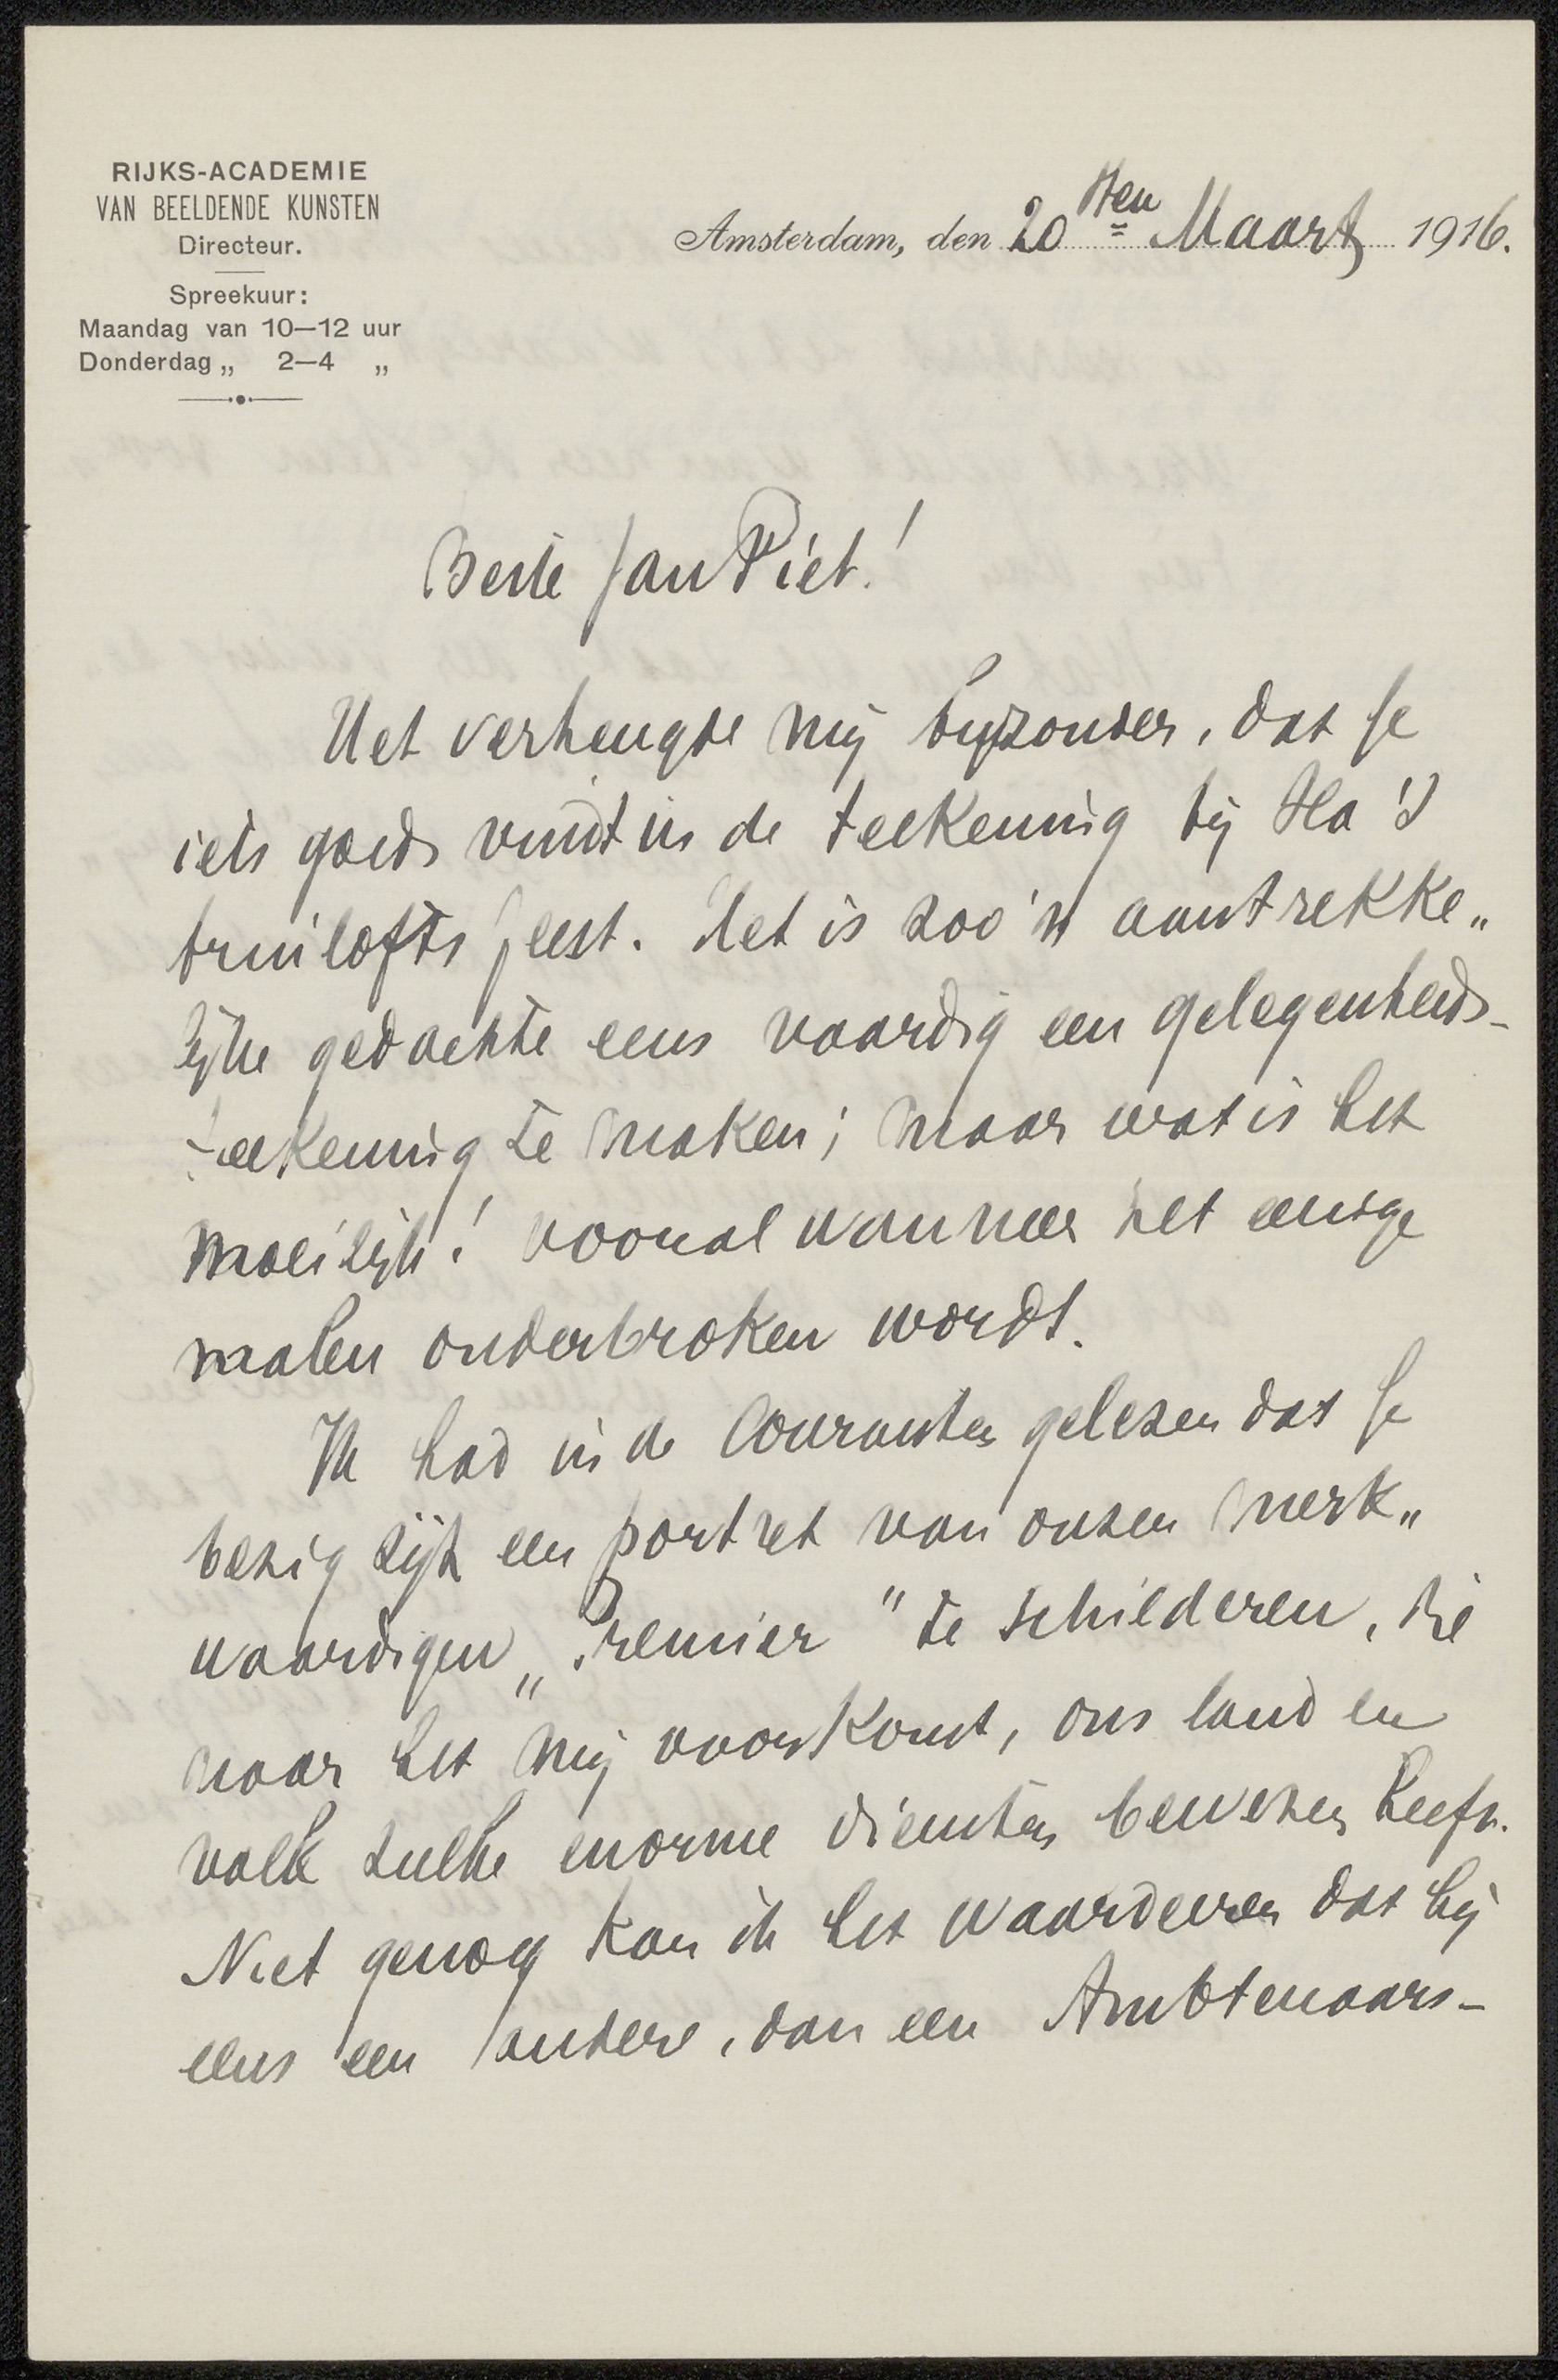 RIJKS-ACADEMIE
VAN BEELDENDE KUNSTEN
Directeur.
Spreekuur:
Maandag van 10—12 uur
Donderdag „ 2—4 „
Amsterdam, den 20sten Maart 1916.
Beste Jan Piet!
Het verheugde mij byzonder, dat je
iets goeds vindt in de teekening bij Ha's
bruilofts feest. Het is zoo'n aantrekke„
lijke gedachte eens vaardig een gelegenheids-
teekening te maken; maar wat is het
moeilijk! vooral wanneer het eenige
malen onderbroken wordt.
Ik had in de Couranten gelezen dat je
bezig zijt een portret van onzen merk„
waardigen „Premier" te schilderen, die
naar het mij voorkomt, ons land en
volk zulke enorme diensten bewezen heeft.
Niet genoeg kan ik het waardeeren dat hij
eens een andere, dan een Ambtenaars-